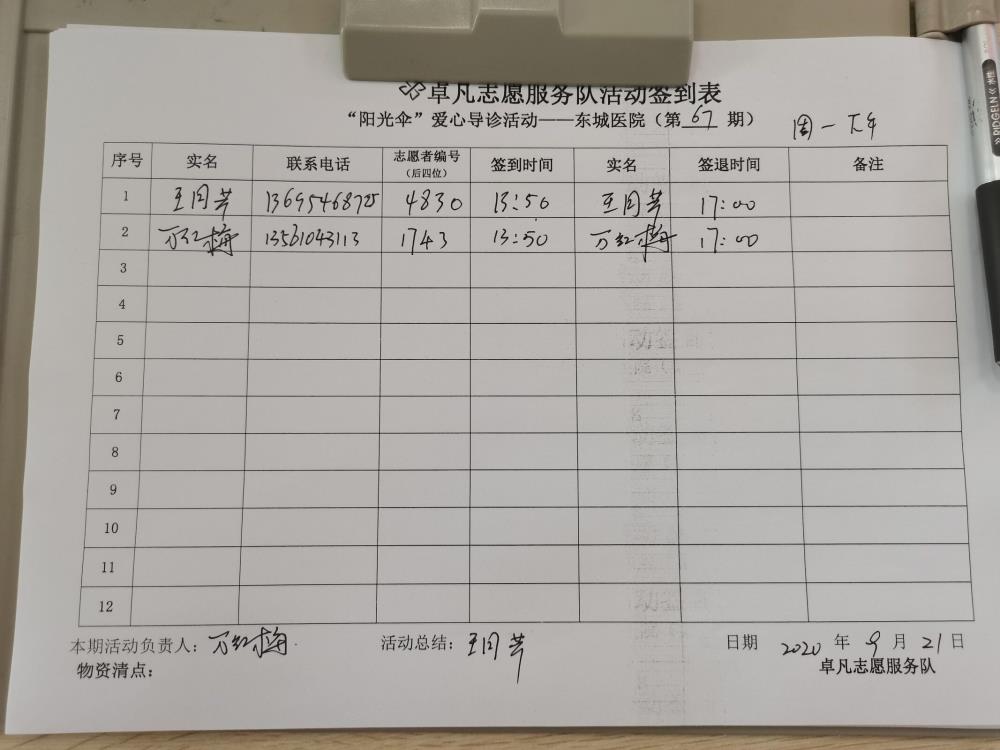 卓凡志愿服务队活动签到表
“阳光伞”爱心导诊活动——东城医院（第 67 期） 周一下午
序号 实名 联系电话 志愿者编号（后四位） 签到时间 实名 签退时间 备注
1 王同芹 13695468725 4830 13:50 王同芹 17:00
2 万红梅 13561043113 1743 13:50 万红梅 17:00
3
4
5
6
7
8
9
10
11
12
本期活动负责人：万红梅 活动总结：王同芹 日期 2020 年 9 月 21 日
物资清点： 卓凡志愿服务队